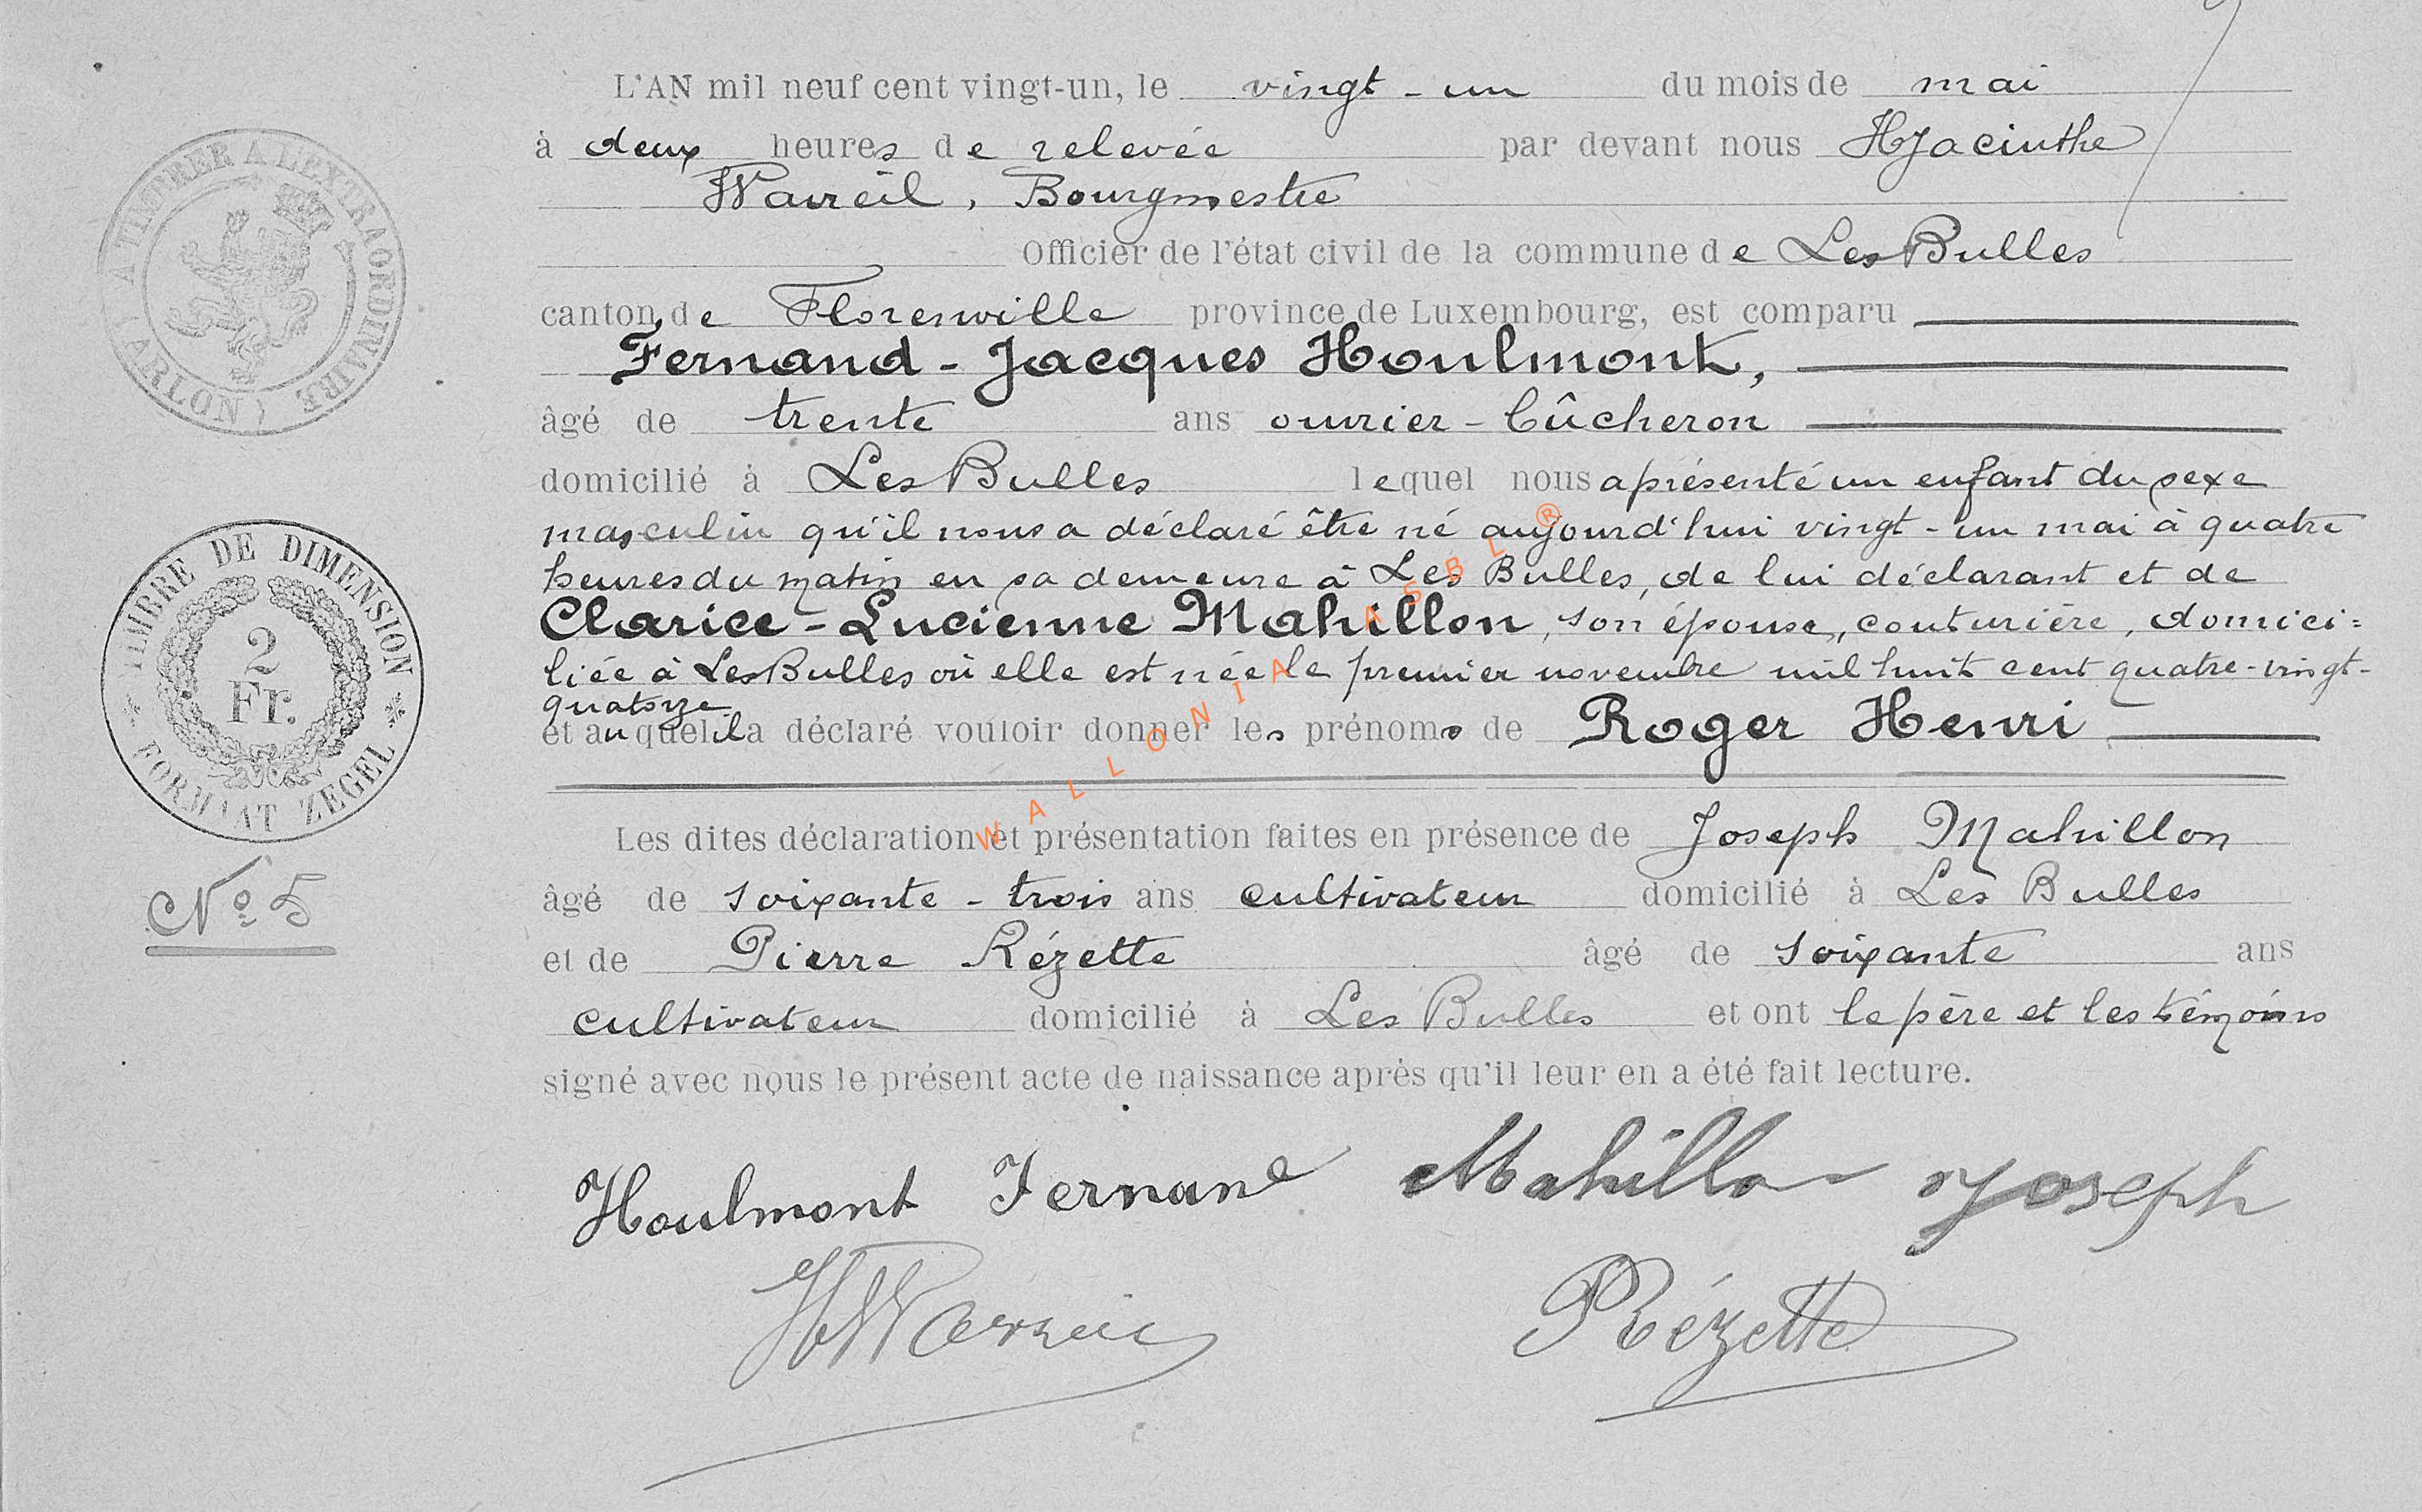 L'AN mil neuf cent vingt-un, le vingt-un du mois de mai
à deux heures de relevée par devant nous Hyacinthe
Bourgmestre
Officier de l'état civil de la commune de Les Bulles
canton de Florenville province de Luxembourg, est comparu
Fernand-Jacques Houlmont,
âgé de trente ans ouvrier-bûcheron
domicilié à Les Bulles lequel nous a présenté un enfant du sexe
masculin qu'il nous a déclaré être né aujourd'hui vingt-un mai à quatre
heures du matin en sa demeure à Les Bulles, de lui déclarant et de
Clarice-Lucienne Mahillon, son épouse, couturière, domici=
liée à Les Bulles où elle est née le premier novembre mil huit cent quatre-vingt-
quatorze
et auquel il a déclaré vouloir donner les prénoms de Roger Henri
Les dites déclaration et présentation faites en présence de Joseph Mahillon
âgé de soixante-trois ans cultivateur domicilié à Les Bulles
et de Pierre Rézette âgé de soixante ans
cultivateur domicilié à Les Bulles et ont le père et les témoins
signé avec nous le présent acte de naissance après qu'il leur en a été fait lecture.
Houlmont Fernand Mahillon Joseph
Rézette
A TIMBRER A L'EXTRAORDINAIRE
(ARLON)
TIMBRE DE DIMENSION
2
Fr.
FORMAAT ZEGEL
No 5
WALLONIA ASBL ®